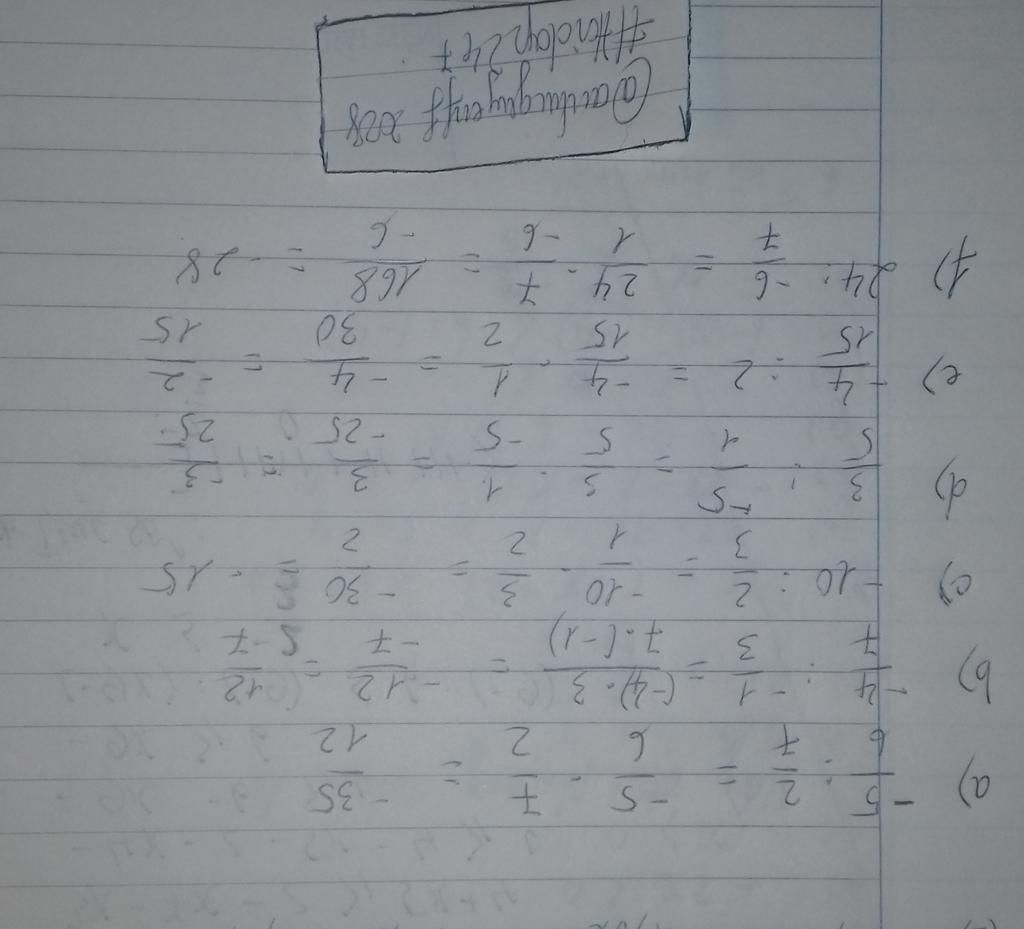 a) -5/6 : 2/7 = -5/6 · 7/2 = -35/12
b) -4/7 : -1/3 = (-4)·3/7·(-1) = -12/-7 = 12/7
c) -10 : 2/3 = -10/1 · 3/2 = -30/2 = -15
d) 3/5 : -5/1 = 3/5 · 1/-5 = 3/-25 = -3/25
e) -4/15 : 2 = -4/15 · 1/2 = -4/30 = -2/15
f) 24 : -6/7 = 24/1 · 7/-6 = 168/-6 = -28
#Hoidap247